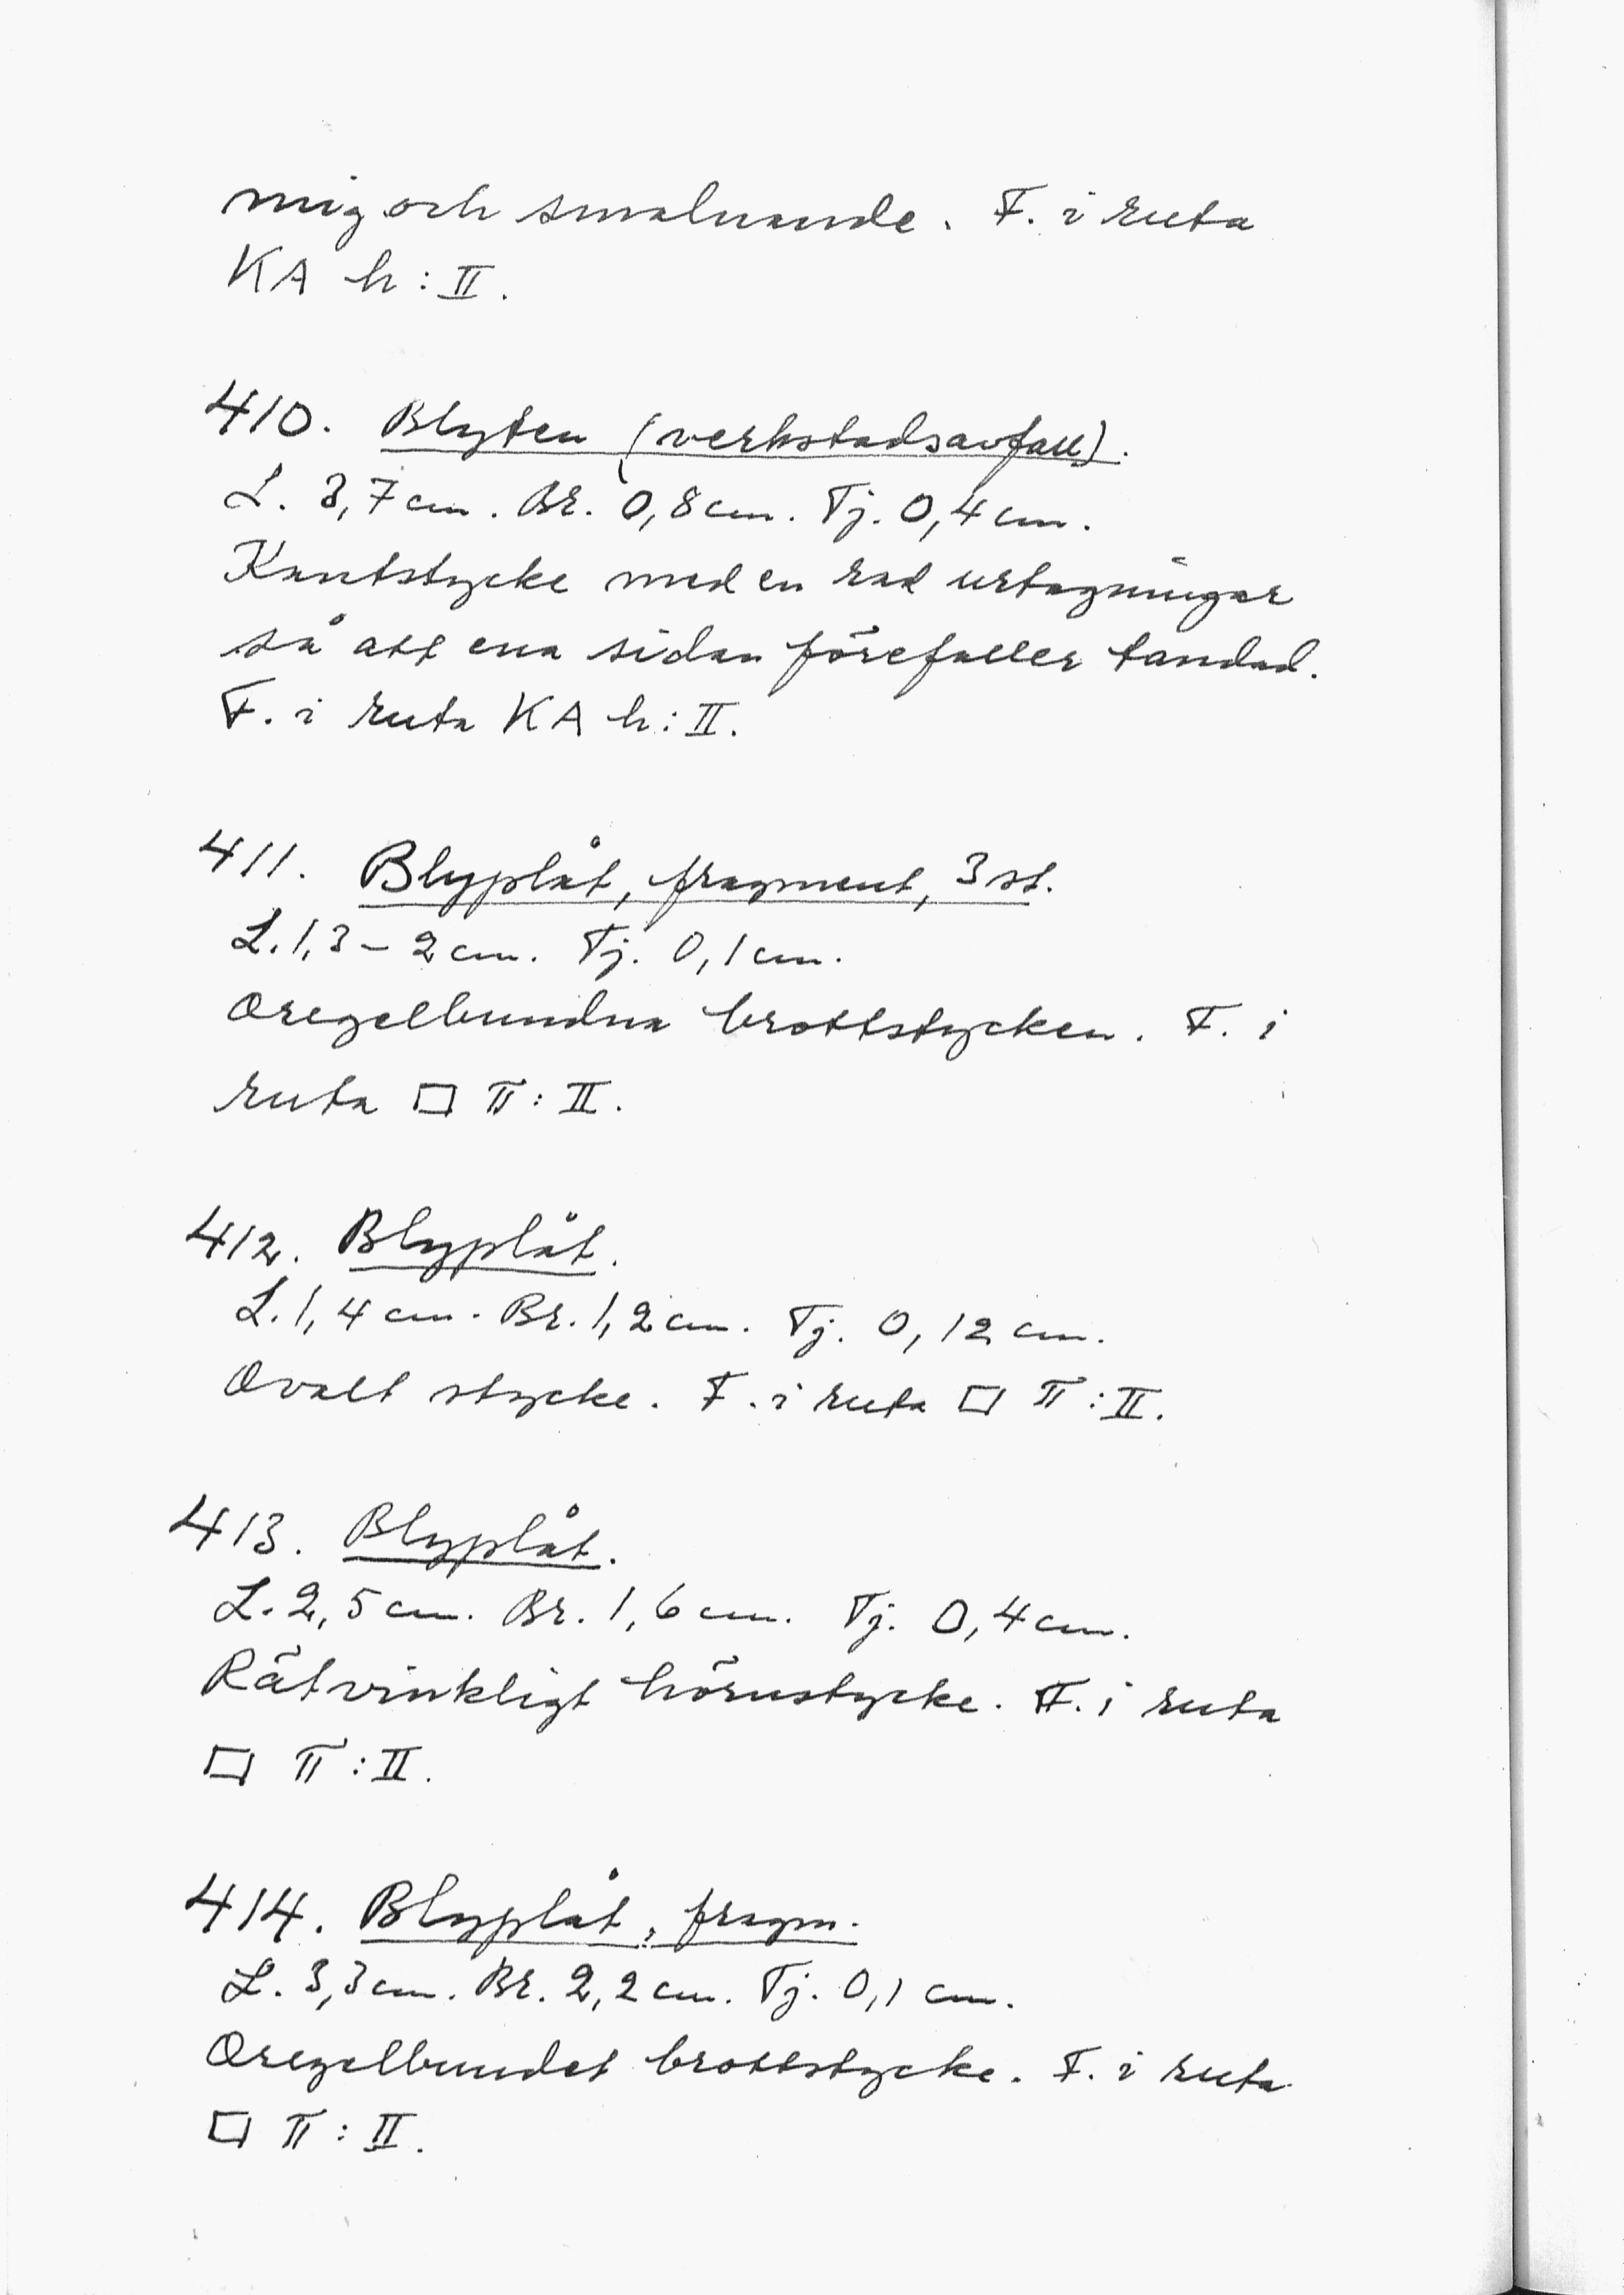 mig och smalnande. F. i ruta
KA h:II.
410. Blyten (verkstadsavfall).
L. 3,7 cm. Br. 0,8 cm. Tj. 0,4 cm.
Kantstycke med en rad urtagningar
så att ena sidan förefaller tandad.
F. i ruta KA h:II.
411. Blyplåt, fragment, 3 st.
L. 1,3 – 2 cm. Tj. 0,1 cm.
Oregelbundna brottstycken. F. i
ruta □ π : II.
412. Blyplåt.
L. 1,4 cm. Br. 1,2 cm. Tj. 0,12 cm.
Ovalt stycke. F. i ruta □ π : II.
413. Blyplåt.
L. 2,5 cm. Br. 1,6 cm. Tj. 0,4 cm.
Rätvinkligt hörnstycke. F. i ruta
□ π : II.
414. Blyplåt, fragm.
L. 3,3 cm. Br. 2,2 cm. Tj. 0,1 cm.
Oregelbundet brottstycke. F. i ruta
□ π : II.